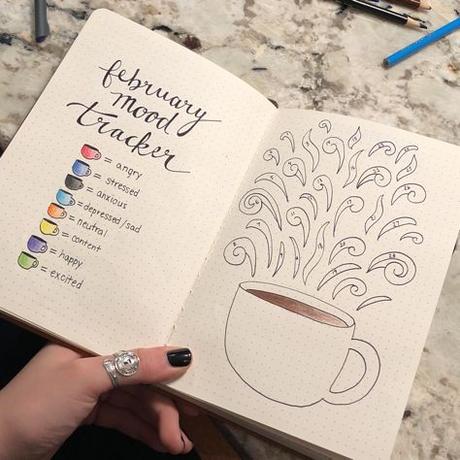 february
mood
tracker
= angry
= stressed
= anxious
= depressed/sad
= neutral
= content
= happy
= excited